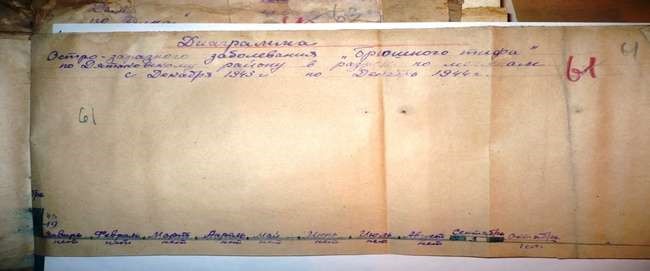 Диаграмма
Остро-заразного заболевания "Брюшного тифа"
по Дятьковскому району в разрезе по месяцам
с Декабря 1943 г. по Декабрь 1944 г.
61
61
Январь Февраль Март Апрель Май Июнь Июль Август Сентябрь Октябрь
нет нет нет нет нет нет нет нет 1